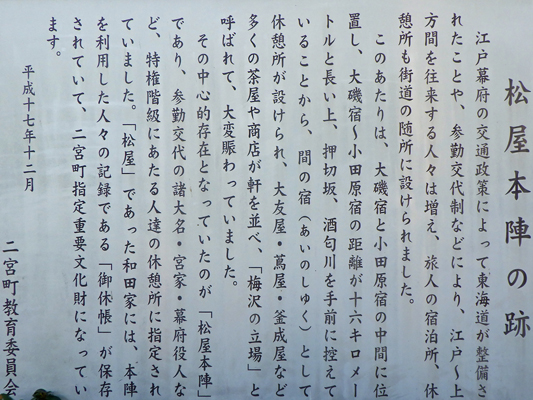 松屋本陣の跡
江戸幕府の交通政策によって東海道が整備さ
れたことや、参勤交代制などにより、江戸~上
方間を往来する人々は増え、旅人の宿泊所、休
憩所も街道の随所に設けられました。
このあたりは、大磯宿と小田原宿の中間に位
置し、大磯宿~小田原宿の距離が十六キロメー
トルと長い上、押切坂、酒匂川を手前に控えて
いることから、間の宿(あいのしゅく)として
休憩所が設けられ、大友屋・蔦屋・釜成屋など
多くの茶屋や商店が軒を並べ、「梅沢の立場」と
呼ばれて、大変賑わっていました。
その中心的存在となっていたのが「松屋本陣」
であり、参勤交代の諸大名・宮家・幕府役人な
ど、特権階級にあたる人達の休憩所に指定され
ていました。「松屋」であった和田家には、本陣
を利用した人々の記録である「御休帳」が保存
されていて、二宮町指定重要文化財になってい
ます。
平成十七年十二月
二宮町教育委員会